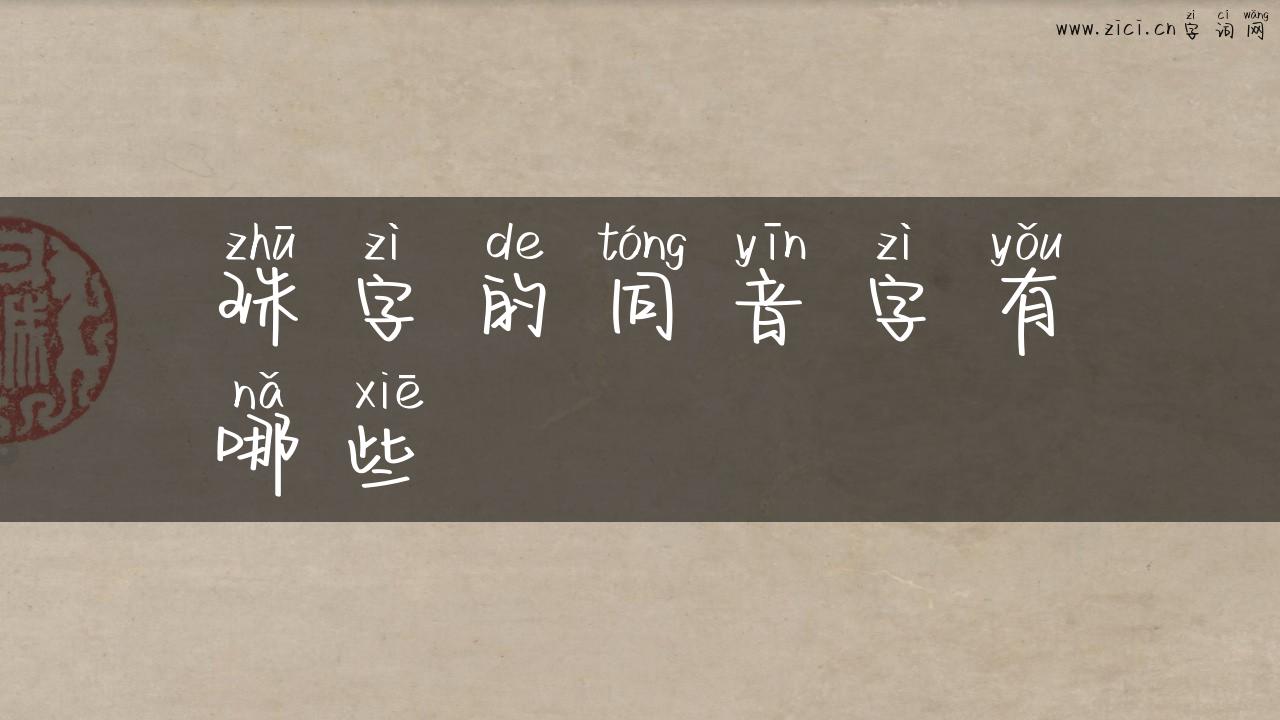 zì cí wǎng
www.zici.cn字词网
zhū zì de tóng yīn zì yǒu
珠字的同音字有
nǎ xiē
哪些